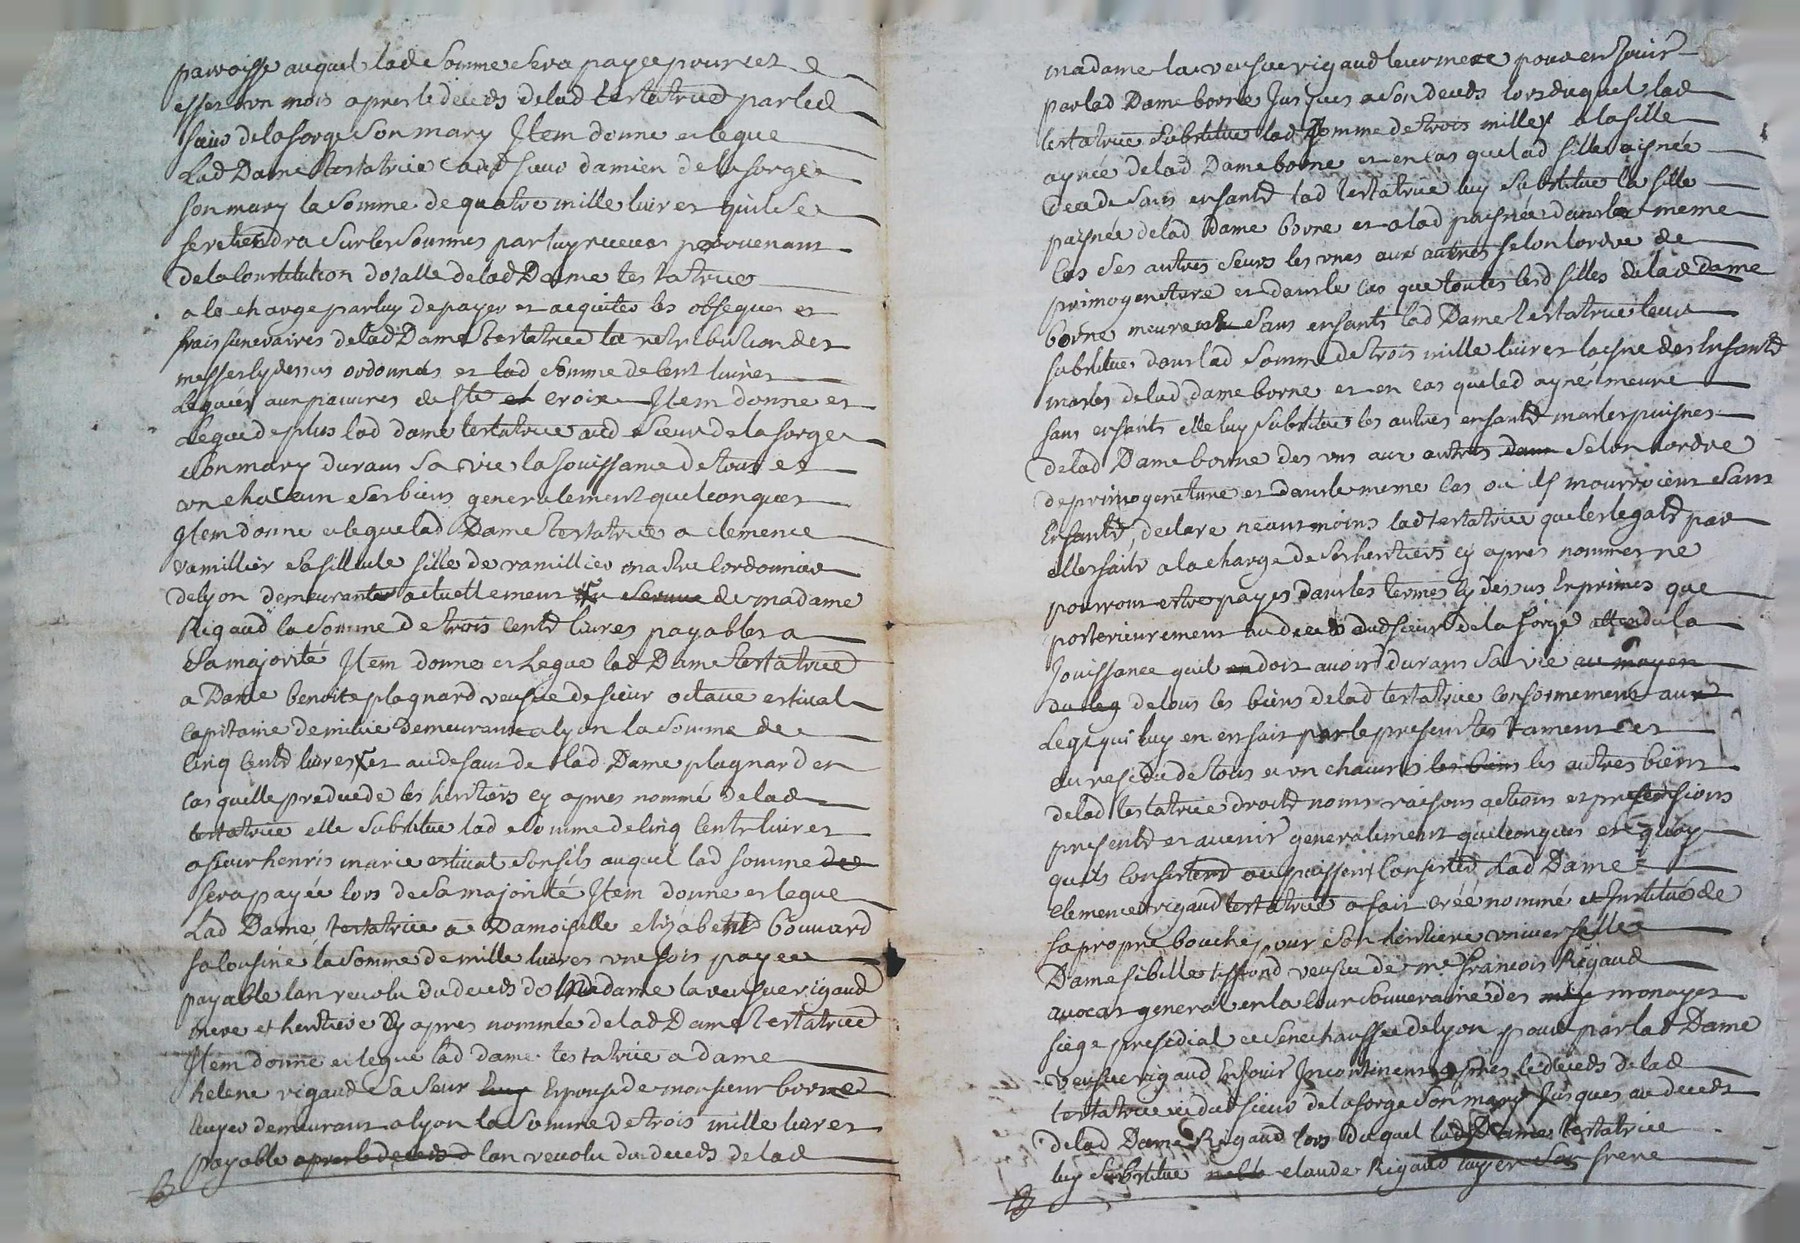 parroisse auquel lad somme sera payée pour cet
effet un mois apres le deceds de lad testatrice par led
sieur de la forge son mary Item donne et legue
Lad Dame testatrice aud sieur damien de la forge
son mary la somme de quatre mille livres quil se
retiendra sur les sommes par luy receues provenant
de la Constitution dotalle de lad Dame testatrice
a la charge par luy de payer et acquiter les obseques et
frais funeraires de lad Dame testatrice la retribution des
messes cy dessus ordonnées et lad somme de Cent livres
Leguée aux pauvres de Ste croix Item donne et
Legue de plus lad dame testatrice aud sieur de la forge
son mary durant sa vie la Jouissance de tous et
un chacun ses biens generalement quelconques
Item donne et legue lad Dame testatrice a clemence
ramillier sa fillule fille de ramillier maitre Cordonnier
de lyon demeurante actuellement de madame
Rigaud la somme de trois Centd livres payables a
sa majorité Item donne et Legue lad Dame testatrice
a Dame benoite plagnard veufve de sieur octave estival
Capitaine de milice demeurant a lyon la somme de
Cinq Centd livres et au defaut de lad Dame plagnard en
Cas quelle predecede les heritiers cy apres nommé de lad
testatrice elle substitue lad somme de Cinq Cent livres
a sieur henris marie estival son fils auquel lad somme dee
sera payée lors de sa majorité Item donne et legue
Lad Dame testatrice a Damoiselle elizabeth bouvard
sa Cousine la somme de mille livres une fois payée
payable lan revolu du deceds de Madame la veufve rigaud
mere et heritiere Cy apres nommée de lad Dame testatrice
Item donne et legue lad dame testatrice a dame
helene rigaud sa seur Epouse de monsieur borne
Ecuyer demeurant a lyon la somme de trois mille livres
payable apres le deceds d lan revolu du deceds de lad
madame la veufve rigaud leur mere pour en Jouir
par lad Dame borne Jusques a son deceds lors duquel lad
testatrice substitue lad somme de trois milles a la fille
aynée de lad Dame borne et en cas que lad fille aisnée
decede sans enfantd lad testatrice luy substitue la fille
puisnée de lad Dame borne et a lad puisnée dans le meme
Cas ses autres seurs les unes aux autres selon lordre de
primogeniture et dans le cas que toutes lesd filles de lad dame
borne meurent sans enfants lad Dame testatrice leur
substitue dans lad somme de trois mille livres laisne des Enfantd
masles de lad dame borne et en cas que led ayné meure
sans enfants elle luy substitue les autres enfantd masles puisnes
de lad Dame borne des uns aux autres dans selon lordre
de primogeniture et dans le meme Cas ou ils mourroient sans
Enfantd, declare neantmoins lad testatrice que les legatd par
elle faits a la charge de ses heritiers cy apres nommer ne
pourront estre payés dans les termes cy dessus Exprimés que
posterieurement au deceds dud sieur de la forge attendu la
Jouissance quil en doit avoir durant sa vie au moyen
du leg de tous les biens de lad testatrice Conformement au
Legs qui luy en en fait par le present testament et
au residu de tous et un chacuns les biens les autres biens
de lad testatrice droitd noms raisons actions et pretensions
presentd et avenir generalement quelconques et quoy
quils Consistend ou puissent Consister lad Dame
Clemence rigaud testatrice a fait créé nommé et Institué de
sa propre bouche pour son heritiere universelle
Dame sibille tissond veufve de me francois Rigaud
avocat general en la Cour souveraine des monoyes
siege presidial et senechaussée de lyon pour par lad Dame
veufve rigaud En Jouir Incontinent apres le deceds de lad
testatrice et dud sieur de la forge son mary Jusques au deceds
de lad Dame Rigaud lors duquel lad Dame testatrice
luy substitue claude Rigaud son frere